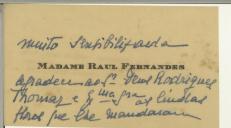 muito sensibilizada
MADAME RAUL FERNANDES
agradece ao Sr. Rodrigues
Thomaz e as lindas
flores que lhe mandaram